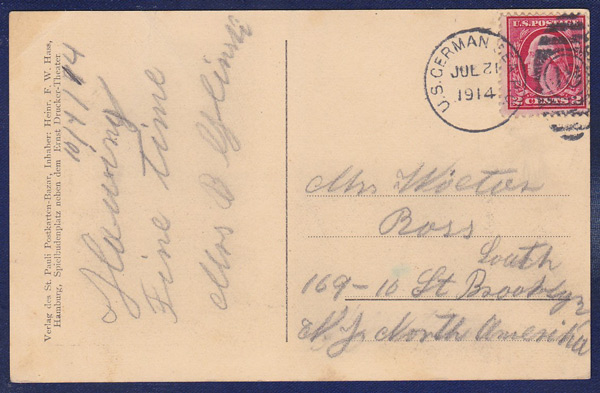 Verlag des St. Pauli Postkarten-Bazar, Inhaber: Heinr. F. W. Hass,
Hamburg, Spielbudenplatz neben dem Ernst Drucker-Theater
10/7/14
Having
Fine time
Mrs B
U.S. GERMAN
JUL 21
1914
U.S. POSTAGE
2 CENTS 2
Mrs
Ross
South
169-10 St Brooklyn
N.Y. North Amerika